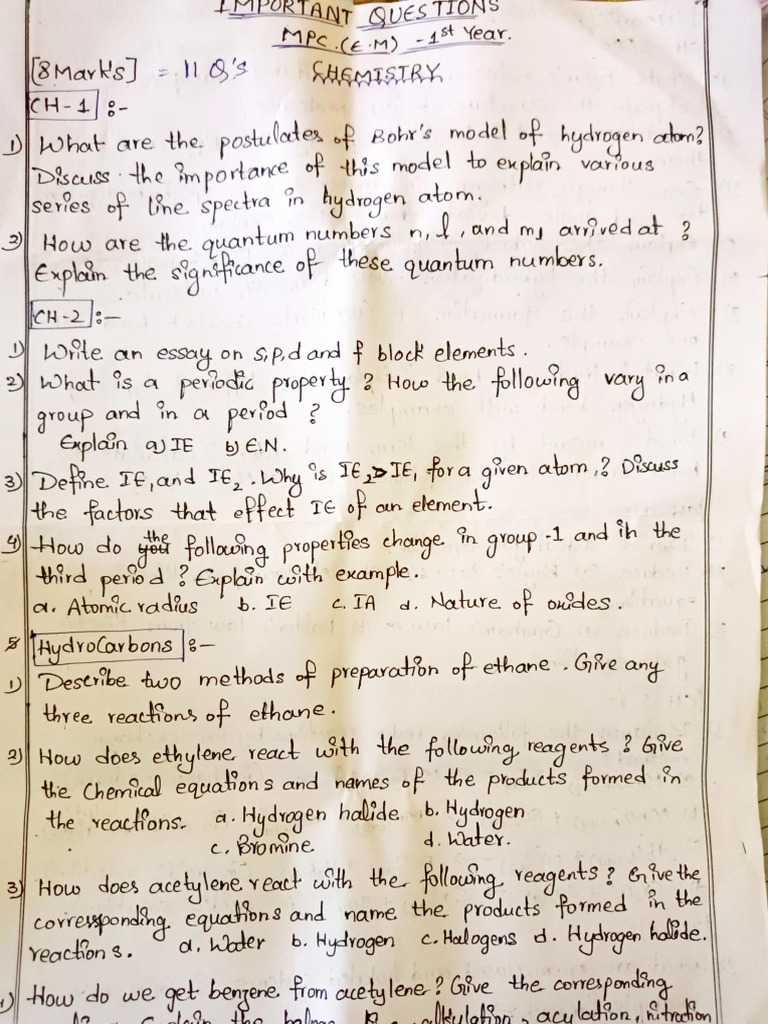 IMPORTANT QUESTIONS
MPC.(E.M) - 1st Year.
[8 Mark's] = 11 Q's CHEMISTRY
CH-1 :-
1) What are the postulates of Bohr's model of hydrogen atom?
Discuss the importance of this model to explain various
series of line spectra in hydrogen atom.
3) How are the quantum numbers n, l, and ml arrived at ?
Explain the significance of these quantum numbers.
CH-2 :-
1) Write an essay on s,p,d and f block elements.
2) What is a periodic property ? How the following vary in a
group and in a period ?
Explain a) IE b) E.N.
3) Define IE1 and IE2. Why is IE2>IE1 for a given atom,? Discuss
the factors that effect IE of an element.
4) How do the following properties change in group-1 and in the
third period ? Explain with example.
a. Atomic radius b. IE c. IA d. Nature of oxides.
8 HydroCarbons :-
1) Describe two methods of preparation of ethane. Give any
three reactions of ethane.
2) How does ethylene react with the following reagents ? Give
the Chemical equations and names of the products formed in
the reactions. a. Hydrogen halide b. Hydrogen
c. Bromine d. Water.
3) How does acetylene react with the following reagents? Give the
corresponding equations and name the products formed in the
reactions. a. Water b. Hydrogen c. Halogens d. Hydrogen halide.
) How do we get benzene from acetylene? Give the corresponding
the alkylation, acylation, nitration